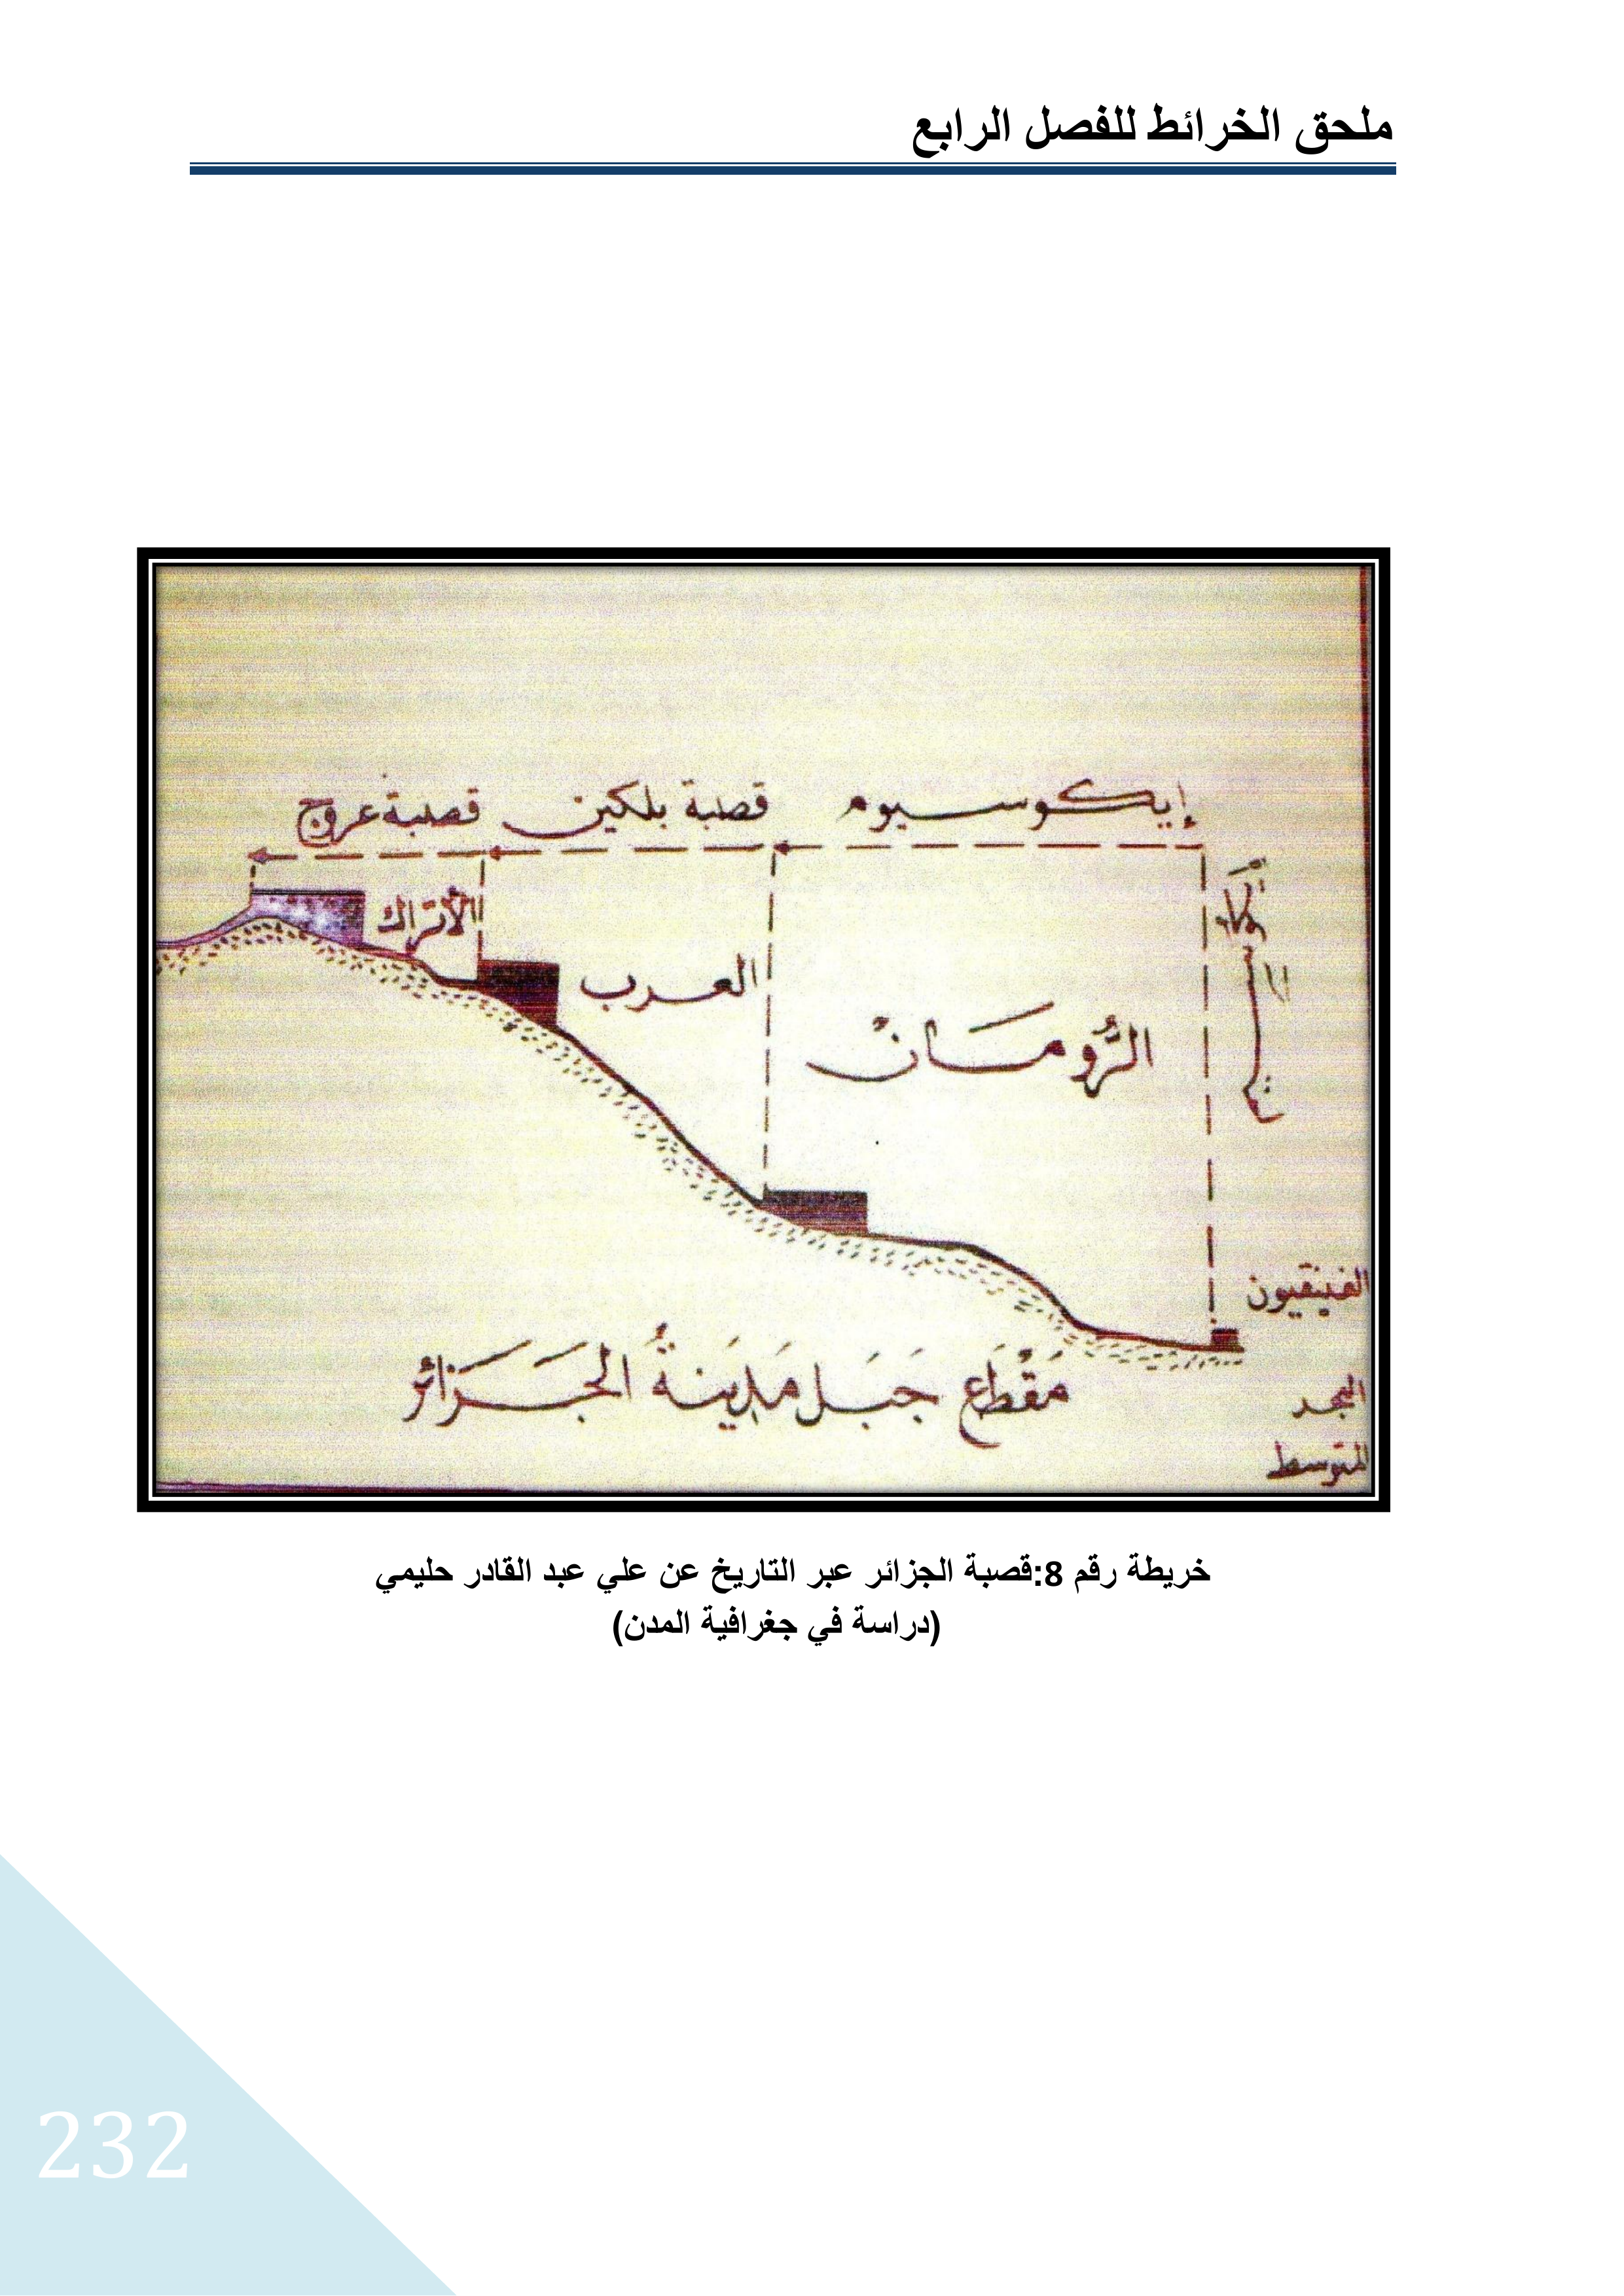 ملحق الخرائط للفصل الرابع
إيكوسيوم
قصبة بلكين
قصبة عروج
الأتراك
العرب
الرُّومَان
الفينقيون
مَقْطَع جَبَل مَدِينَةُ الجَزَائر
المتوسط
خريطة رقم 8:قصبة الجزائر عبر التاريخ عن علي عبد القادر حليمي
(دراسة في جغرافية المدن)
232